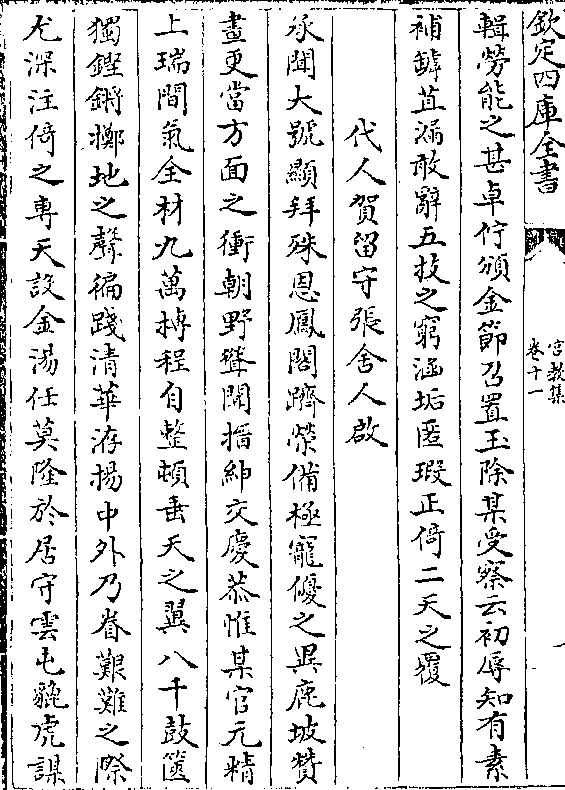 欽定四庫全書
宫教集
卷十一
輯勞能之甚卓佇頒金節召置玉除某受察云初辱知有素
補罅苴漏敢辭五技之窮涵垢匿瑕正倚二天之覆
代人賀留守張舍人啟
承聞大號顯拜殊恩鳳閣躋榮備極寵優之異鹿坡贊
畫更當方面之衝朝野聳聞搢紳交慶恭惟某官元精
上瑞間氣全材九萬摶程自整頓垂天之翼八千鼓篋
獨鏗鏘擲地之聲徧踐清華洊揚中外乃眷艱難之際
尤深注倚之專天設金湯任莫隆於居守雲屯貔虎謀